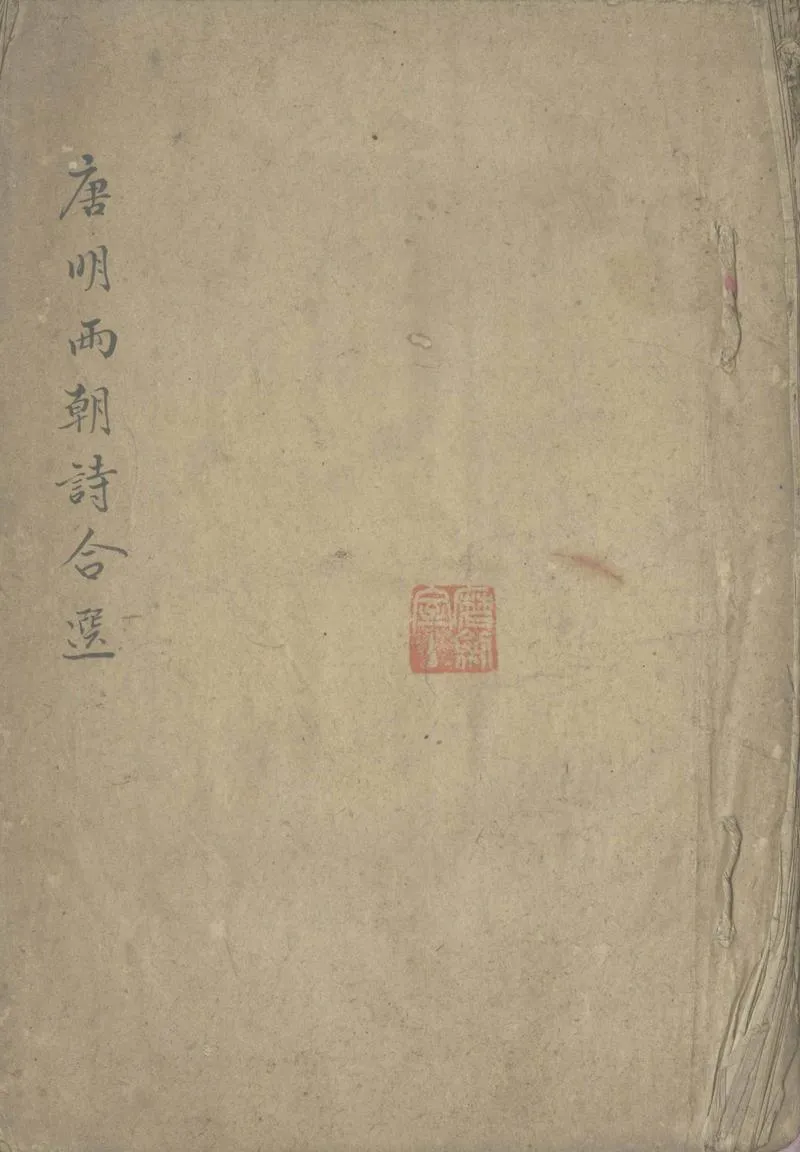 唐明两朝詩合選